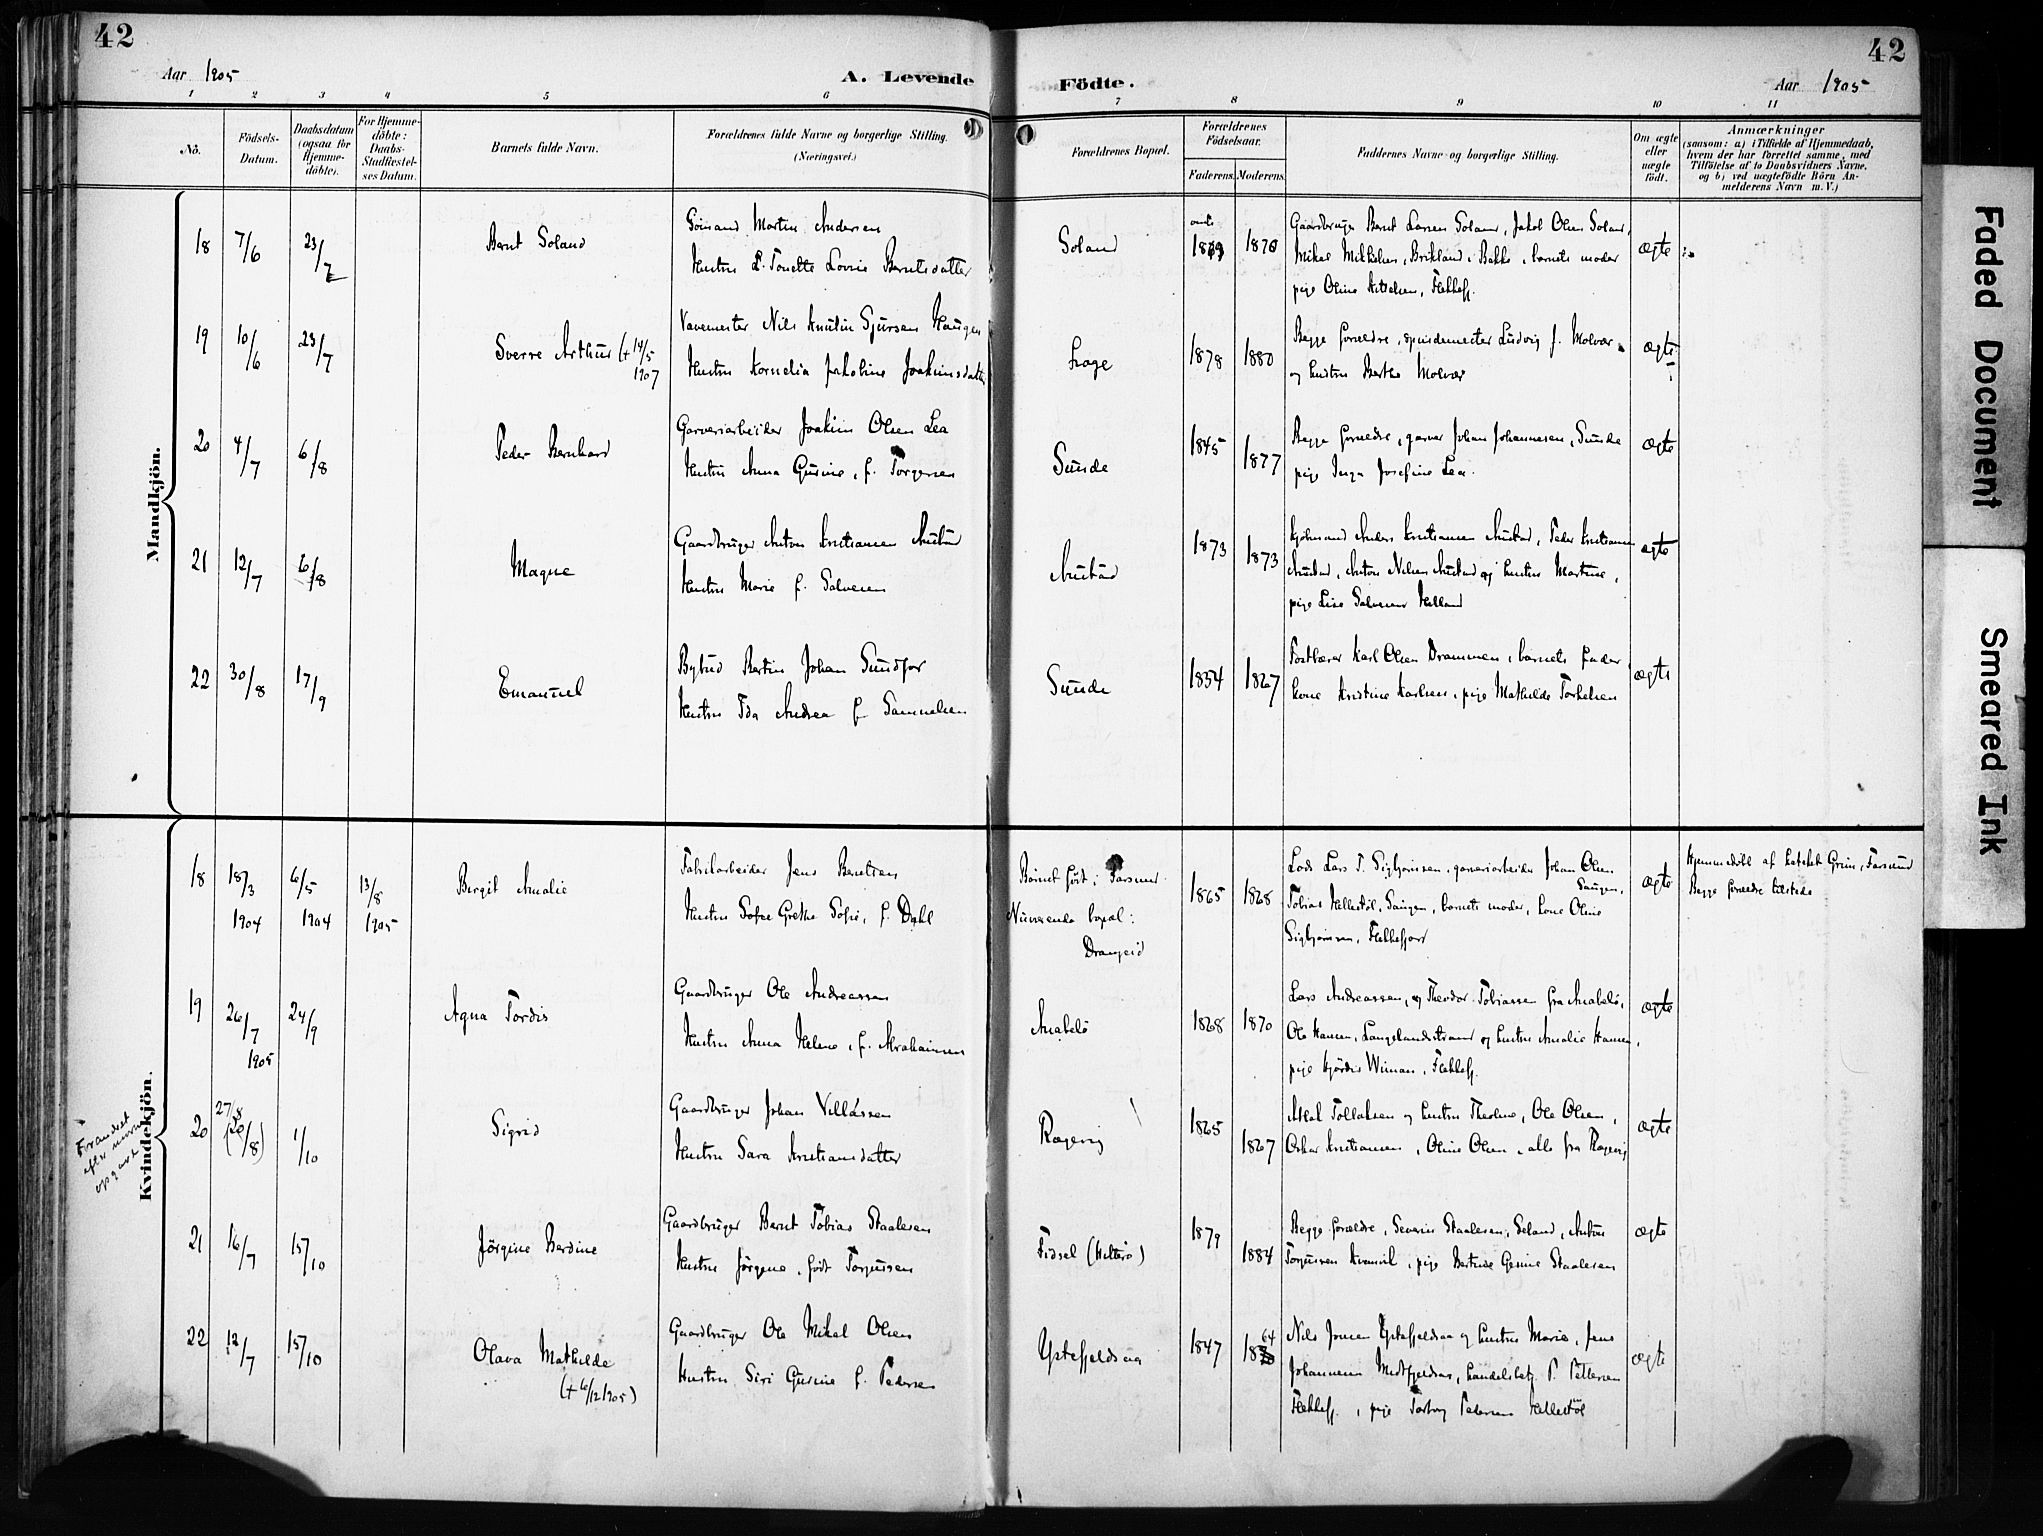 42
42
Aar 1905
A. Levende
Födte.
Aar 1905
1 2 3 4 5 6 7 8 9 10 11
No.
Födsels-
Datum.
Daabsdatum
(ogsaa for
Hjemme-
döbte).
For Hjemme-
döbte:
Daabs-
Stadfæstel-
ses Datum.
Barnets fulde Navn.
Forældrenes fulde Navne og borgerlige Stilling.
(Næringsvei.)
Forældrenes Bopæl.
Forældrenes
Födselsaar.
Faderens. Moderens.
Faddernes Navne og borgerlige Stilling.
Om ægte
eller
uægte
födt.
Anmærkninger
(saasom: a) i Tilfælde af Hjemmedaab,
hvem der har forrettet samme, med
Tilföielse af to Daabsvidners Navne,
og b) ved uægtefödte Börn An-
melderens Navn m. V.)
Mandkjön.
18 7/6 23/7 Bernt Soland
Sömand Martin Andersen
Hustru Tonette Lovise Berntsdatter
Soland 1870 ægte
Gaardbruger Bernt Larsen Soland, Jakob Olsen Soland,
Mikal Mikkelsen, Birkland, Bakke, barnets moder
pige Oline Flekkefj.
19 10/6 23/7 Sverre Arthur (+ 14/5
1907
Vævemester Nils Knutin Sjursen Haugen
Hustru Kornelia Jakobine Joakimsdatter
1878 1880 ægte
Begge forældre, spindemester Ludvig J. Molvær
og hustru Berthe Molvær
20 4/7 6/8 Peder Bernhard
Garveriarbeider Joakim Olsen Lea
Hustru Anna Gurine, f. Torgersen
Sunde 1845 1877 ægte
Begge forældre, garver Johan Johannesen, Sunde
pige Inga Josefine Lea.
21 12/7 6/8 Magne
Gaardbruger Anton Kristiansen Austad
Hustru Marie f. Salvesen
Austad 1873 1873 ægte
Kjöbmand Anders Kristiansen Austad, Peder Kristiansen
Austad, Anton Nilsen Austad og hustru Martine,
pige Lise Salvesen Helland
22 30/8 17/9 Emanuel
Bybud Bertin Johan Sundfor
Hustru Ida Andrea f. Samuelsen
Sunde 1834 1867 ægte
Postbærer Karl Olsen Drammen, barnets fader,
kone Kristine Karlsen, pige Mathilde Torkelsen
Kvindekjön.
18 18/3
1904 6/5
1904 13/8
1905 Birgit Amalie
Fabrikarbeider Jens Berntsen
Hustru Sofie Grethe Sofie, f. Dahl
Barnet födt i Farsund
Nuværende bopæl:
Drangeid
1865 1868 ægte
Lods Lars T. Sigbjørnsen, garveriarbeider Johan Olsen
Saugen,
Tobias Hellestöl, Saugen, barnets moder, kone Oline
Sigbjørnsen, Flekkefjord
Hjemmedöbt af kateket Grim, Farsund
Begge forældre tilstede
19 26/7
1905 24/9 Agna Tordis
Gaardbruger Ole Andreassen
Hustru Anna Helene, f. Abrahamsen
Anabelö 1868 1870 ægte
Lars Andreassen, og Theodor Tobiassen fra Anabelö,
Ole Hansen, Langelandsstrand og hustru Amalie Hansen,
pige Hjördis Wiman, Flekkefj.
20 27/8
(20/8) 1/10 Sigrid
Forandret
efter
opgave
Gaardbruger Johan Villassen
Hustru Sara Kristiansdatter
Rægevig 1865 1867 ægte
Mikal Tollaksen og hustru Theoline, Ole Olsen,
Oskar Kristiansen, Oline Olsen, alle fra Rægevig
21 16/7 15/10 Jörgine Berdine
Gaardbruger Bernt Tobias Staalesen
Hustru Jörgene, födt Torjussen
Fidsel (Hitterö) 1879 1884 ægte
Begge forældre, Severin Staalesen, Seland, Anton
Torjussen Kvanvik, pige Bertine Gesine Staalesen
22 12/7 15/10 Olava Mathilde
(+ 6/12 1905)
Gaardbruger Ole Mikal Olsen
Hustru Siri Gurine f. Pedersen
Ystefjeldsaa 1847 1864 ægte
Nils Jonsen Ystefjeldsaa og hustru Marie, Jens
Johannesen Midtfjeldsaa, handelsbetj. P. Pettersen
Flekkefj., pige Torborg Pedersen Hellestöl
Faded Document
Smeared Ink